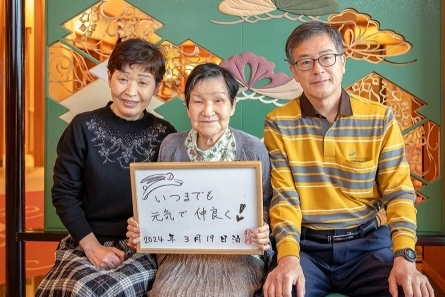 いつまでも
元気で仲良く!
2024年 3月 19日泊